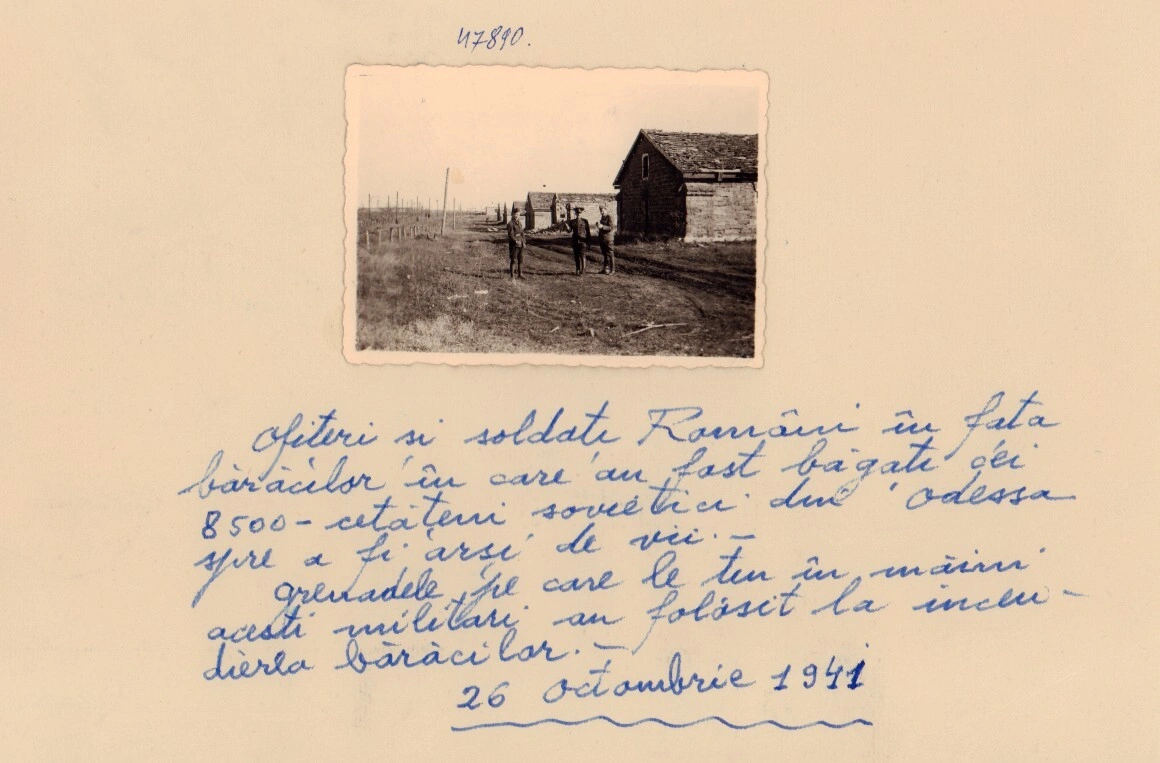 47890.
Ofiteri si soldati Români în fata
bărăcilor în care au fost băgati cei
8500 - cetăteni sovietici din Odessa
spre a fi arsi de vii. -
grenadele pe care le tin în mâini
acesti militari au folosit la incen-
dierea bărăcilor. -
26 octombrie 1941